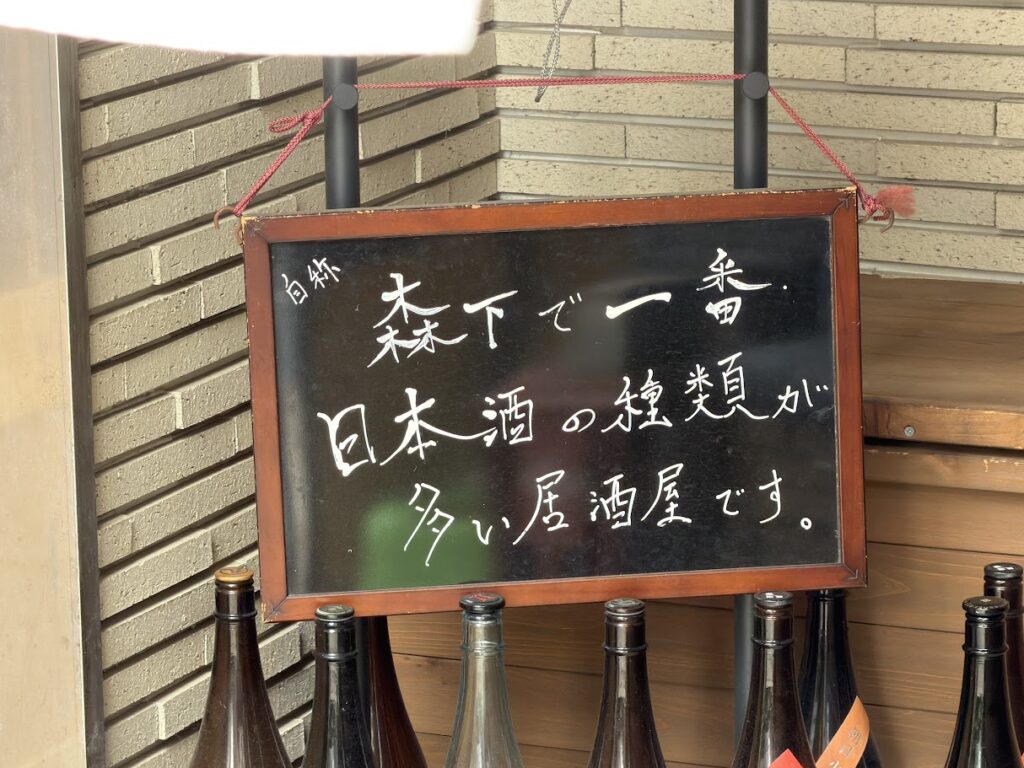 自称
森下で一番
日本酒の種類が
多い居酒屋です。